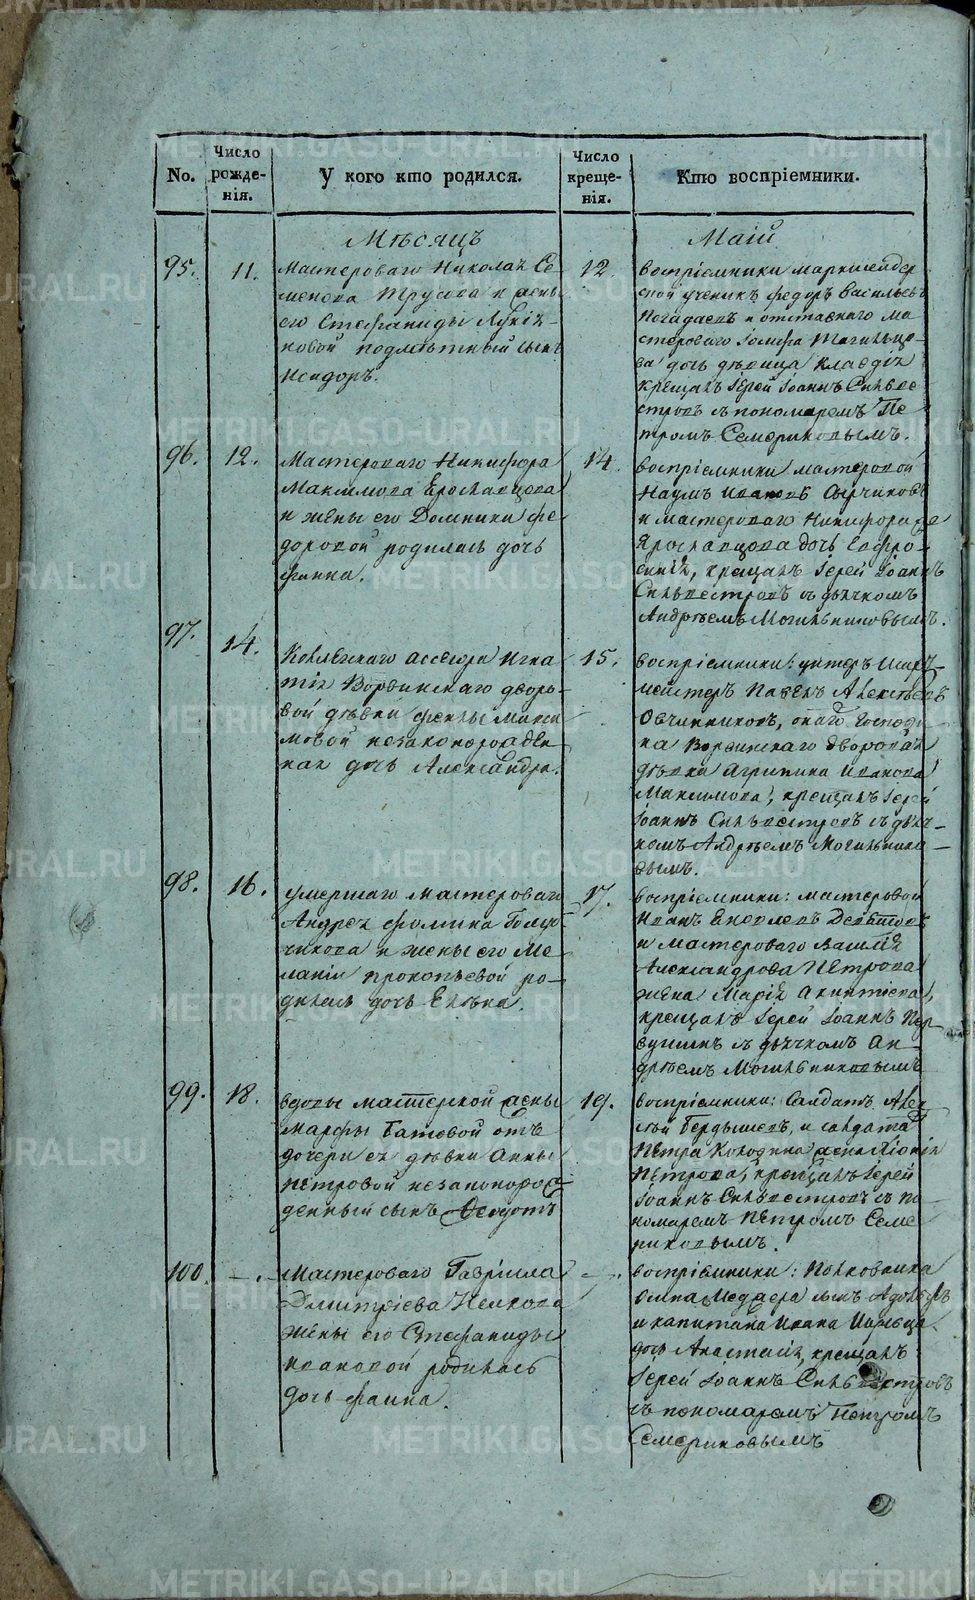 No.
Число рожде-нія.
У кого кто родился.
Число креще-нія.
Кто воспріемники.
Мѣсяцъ
Маій
95.
11.
Мастероваго Николая Се-
менова Трусова и жены
его Стефаниды Лукія-
новой
сынъ
Исидоръ.
12.
воспріемники маркшейдер
ской ученикъ Федоръ Васильевъ
и отставнаго ма-
стероваго
ва дочь дѣвица Клавдія
крещалъ Іерей Іоаннъ Сильве-
стровъ съ пономаремъ Пе-
тромъ Семериковымъ.
96.
12.
Мастероваго Никифора
Максимова Ерославцова
и жены его Домники Фе-
доровой родилась дочь
Фаина.
14.
воспріемники мастеровой
Наумъ Ивановъ Сырчиковъ
и мастероваго Никифора
Ярославцова дочь Евфро-
синія, крещалъ Іерей Іоаннъ
Сильвестровъ съ дьячкомъ
Андрѣемъ Могильниковымъ.
97.
14.
Коллежскаго ассесора Игна
тія Ворвинскаго дворо-
вой дѣвки Феклы Макси
мовой незаконорожден
ная дочь Александра.
15.
воспріемники: унтеръ Шихт-
мейстеръ Павелъ Алексѣевъ
Овчинниковъ, онаго Господи-
на Ворвинскаго дворовая
дѣвка Агрипина Иванова
Максимова, крещалъ Іерей
Іоаннъ Сильвестровъ съ дьяч-
комъ Андрѣемъ Могильнико-
вымъ.
98.
16.
умершаго мастероваго
Андрея Фомина
и жены его Ме-
ланіи Прокопьевой ро-
дилась дочь Елена.
17.
воспріемники: мастеровой
Иванъ
и мастероваго Василія
Александрова Петрова
жена Марія
крещалъ Іерей Іоаннъ Пер-
вушинъ съ дьячкомъ Ан-
дрѣемъ Могильниковымъ
99.
18.
вдовы мастерской жены
Марфы Батевой отъ
дочери ея дѣвки Анны
Петровой незаконорож-
денный сынъ Ѳеодотъ
19.
воспріемники: Солдатъ Алек
сѣй Бердышевъ, и солдата
Петра Колодкина жена Хіонія
Петрова, крещалъ Іерей
Іоаннъ Сильвестровъ съ по-
номаремъ Петромъ Семе
риковымъ.
100.
—.—
Мастероваго Гавріила
Дмитріева
жены его Стефаниды
Ивановой родилась
дочь Фаина.
—.
воспріемники: Полковника
сынъ Адольфъ
и капитана Ивана
дочь Анастасія, крещалъ
Іерей Іоаннъ Сильвестровъ
съ пономаремъ Петромъ
Семериковымъ
METRIKI.GASO-URAL.RU